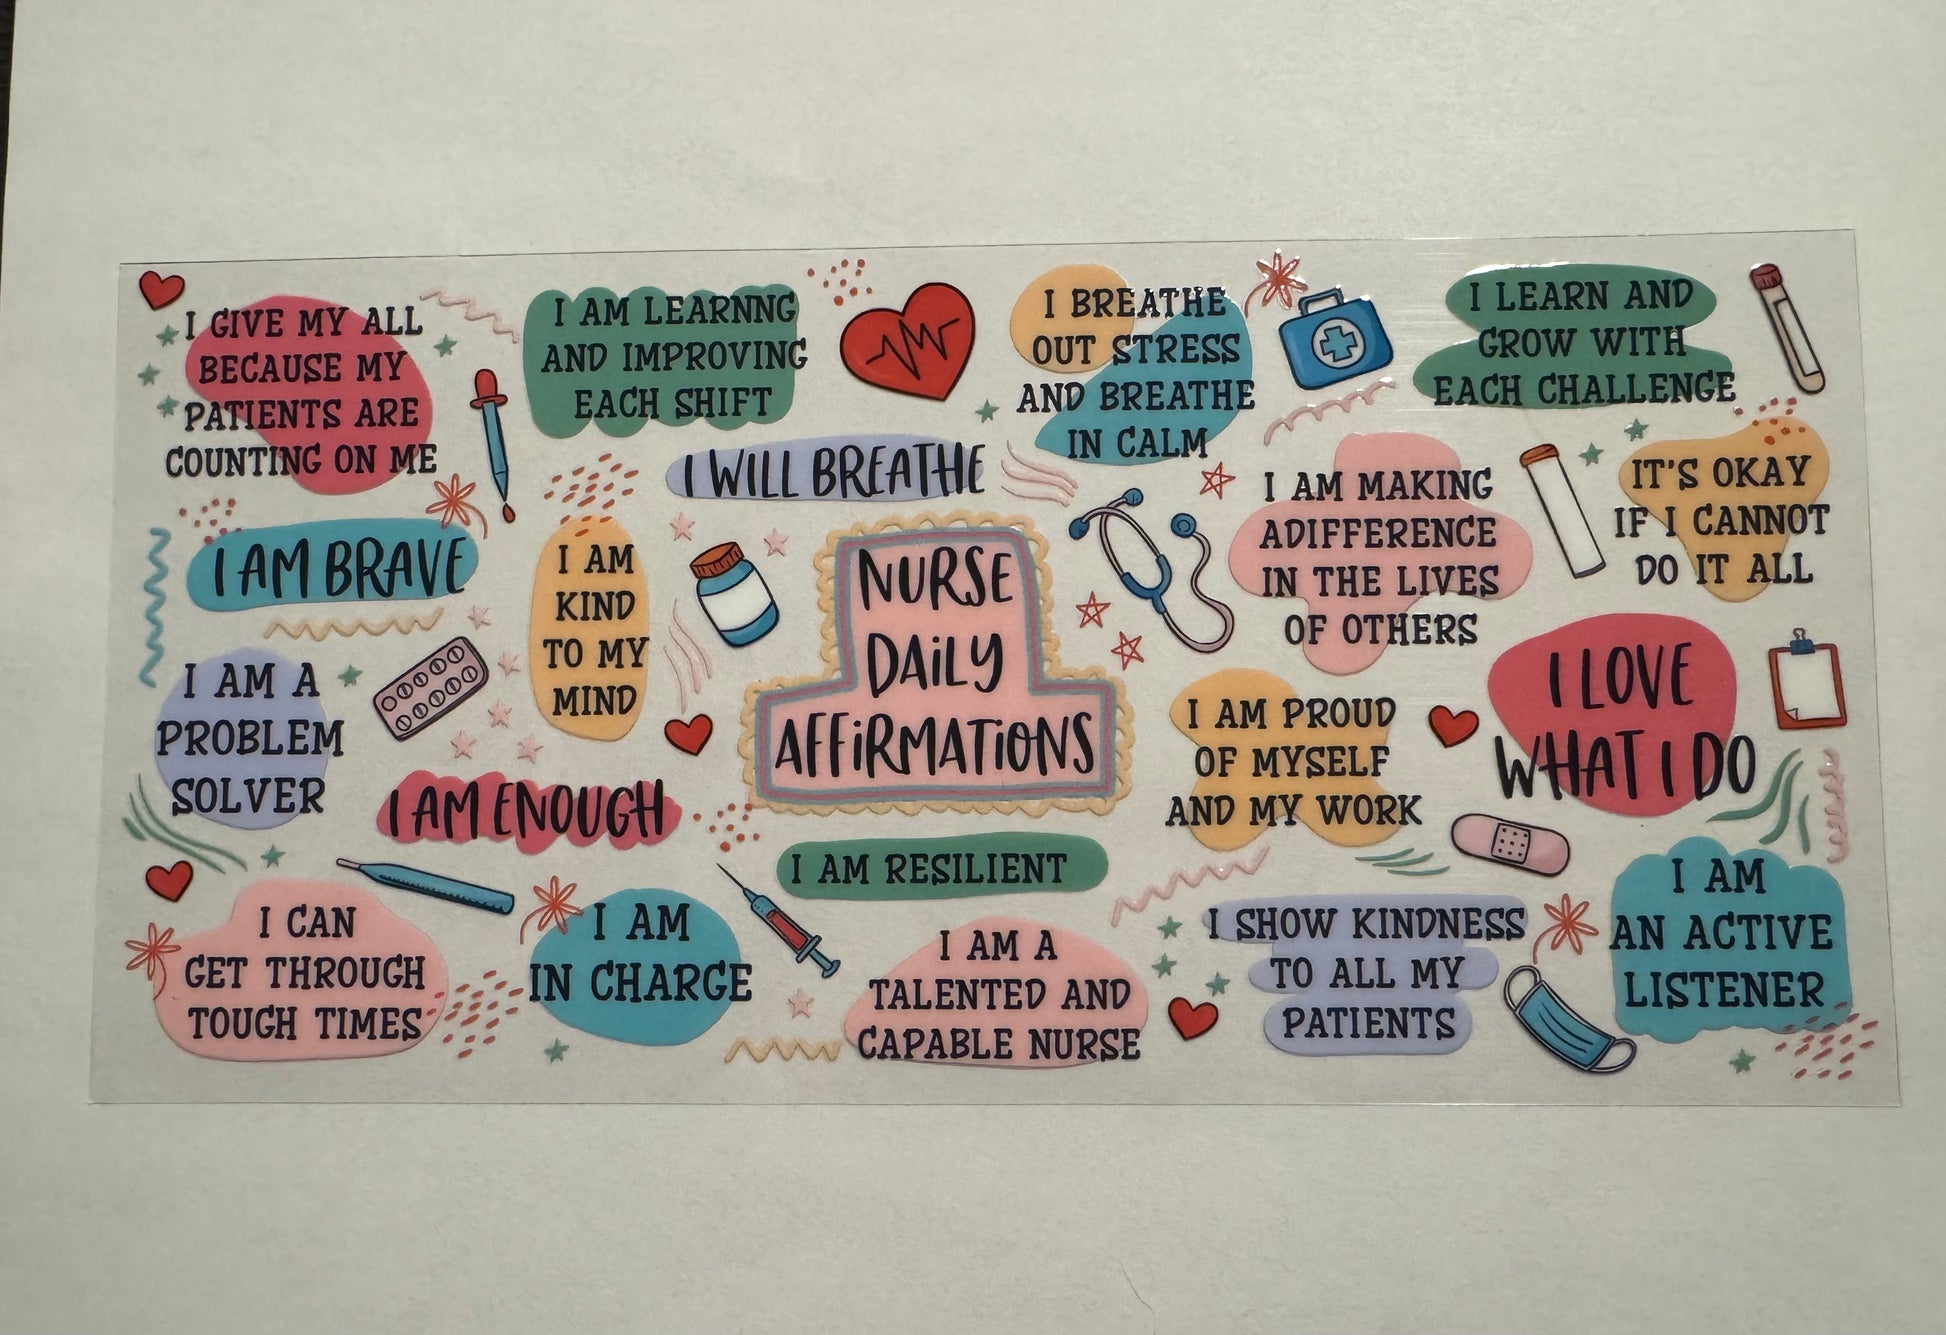 I GIVE MY ALL
BECAUSE MY
PATIENTS ARE
COUNTING ON ME
I AM LEARNNG
AND IMPROVING
EACH SHIFT
I BREATHE
OUT STRESS
AND BREATHE
IN CALM
I LEARN AND
GROW WITH
EACH CHALLENGE
I WILL BREATHE
I AM BRAVE
I AM
KIND
TO MY
MIND
NURSE
DAILY
AFFIRMATIONS
I AM MAKING
ADIFFERENCE
IN THE LIVES
OF OTHERS
IT'S OKAY
IF I CANNOT
DO IT ALL
I AM A
PROBLEM
SOLVER
I AM ENOUGH
I AM PROUD
OF MYSELF
AND MY WORK
I LOVE
WHAT I DO
I AM RESILIENT
I CAN
GET THROUGH
TOUGH TIMES
I AM
IN CHARGE
I AM A
TALENTED AND
CAPABLE NURSE
I SHOW KINDNESS
TO ALL MY
PATIENTS
I AM
AN ACTIVE
LISTENER